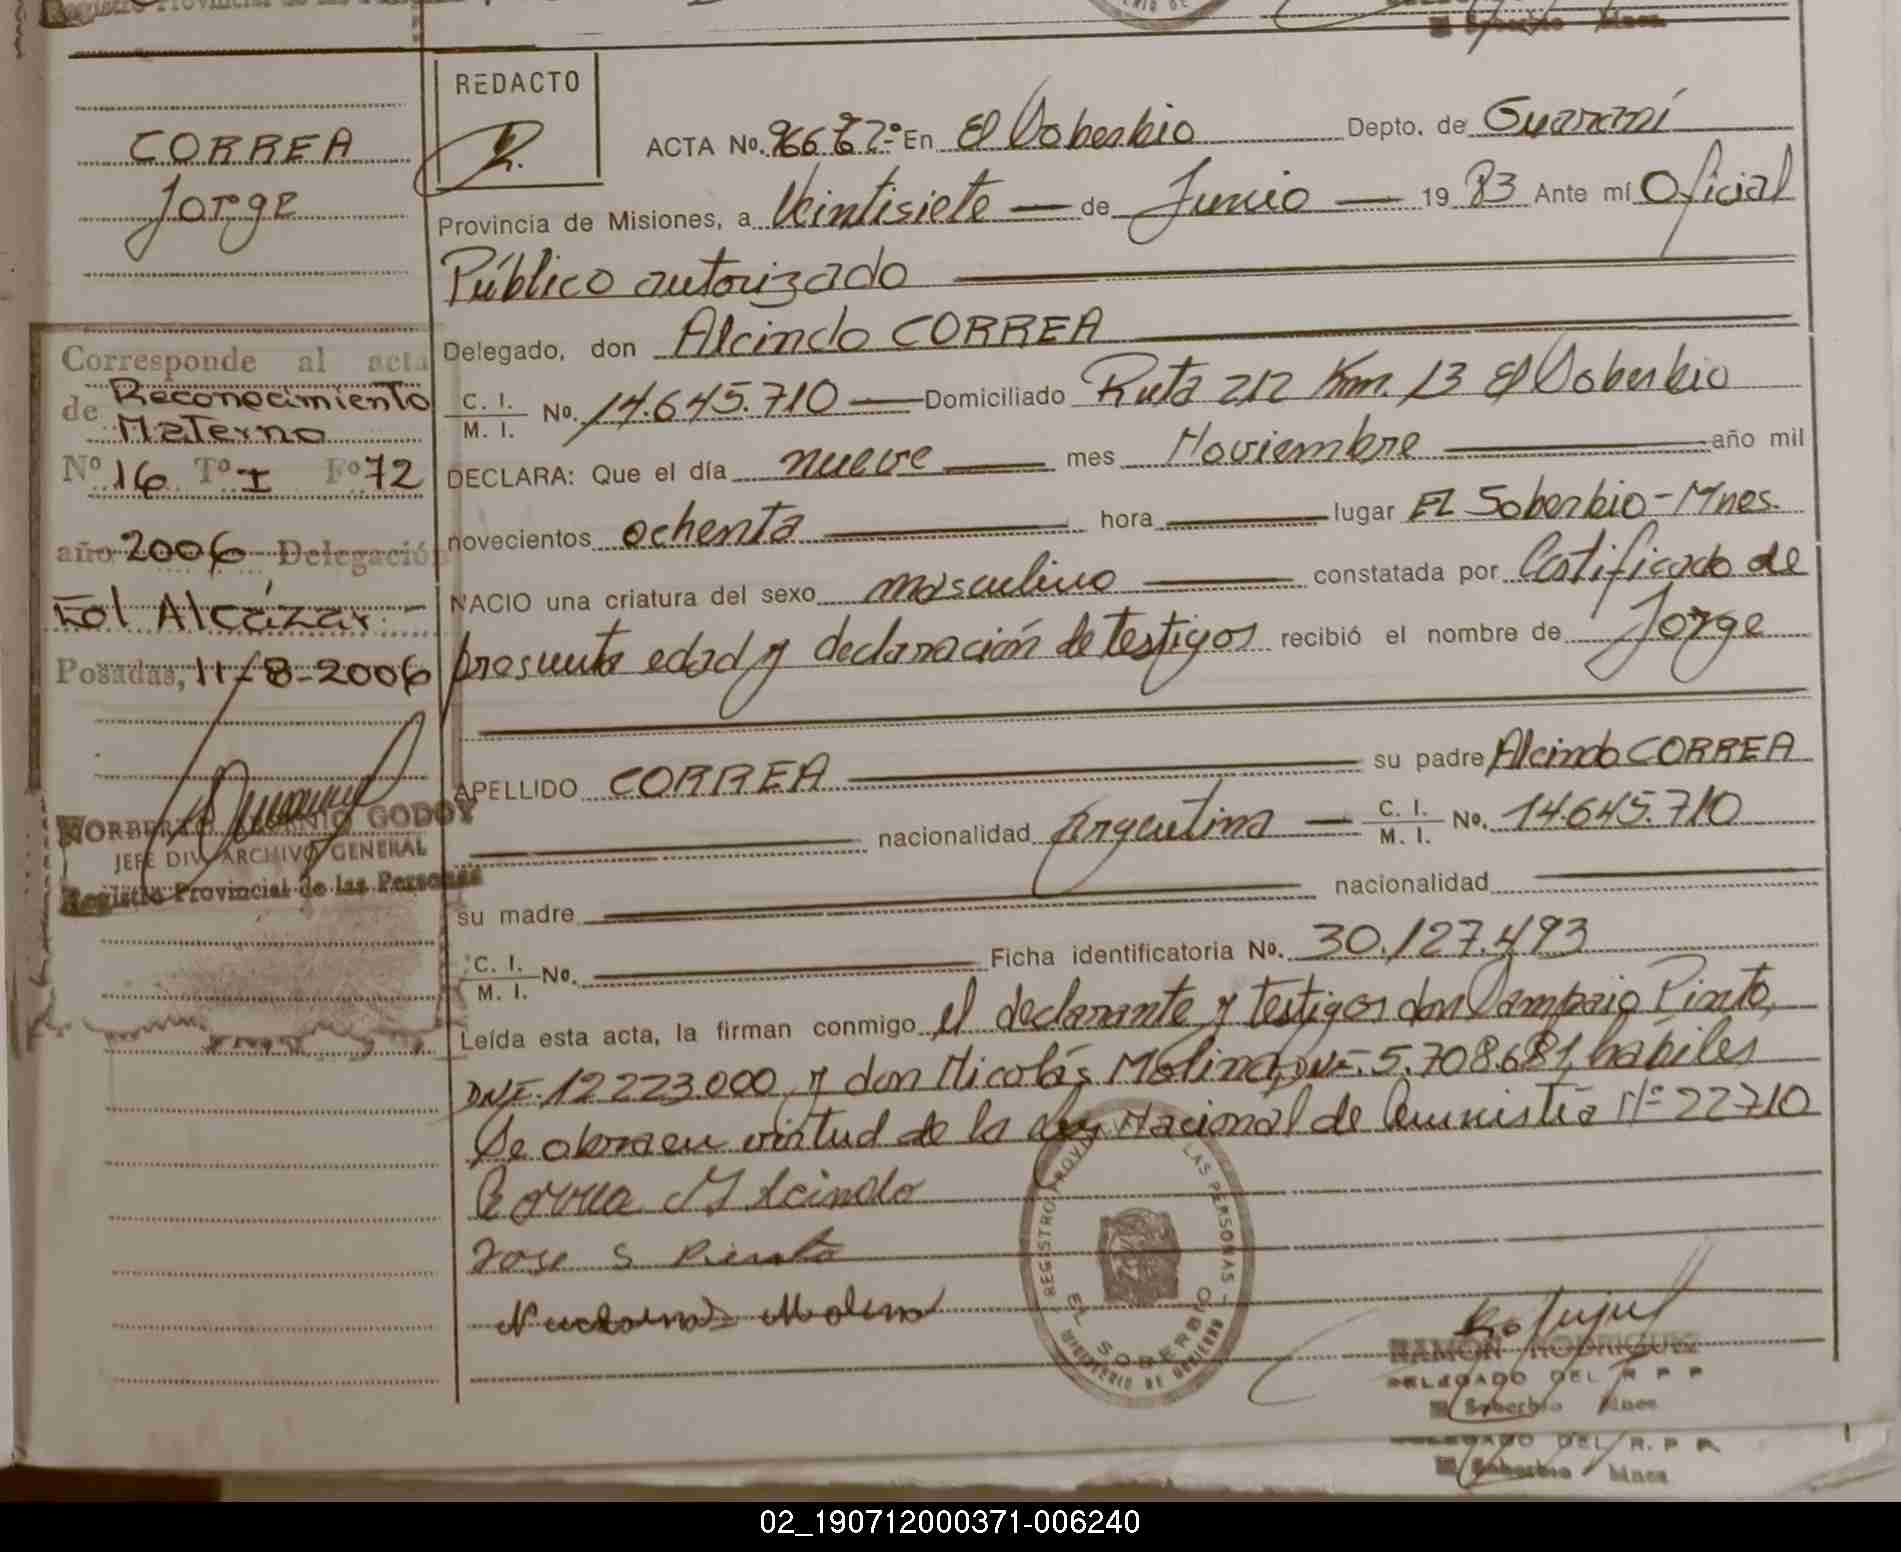 Registro Provincial de las
CORREA
Jorge
Corresponde al acta
de Reconocimiento
Materno
Nº 16 Tº I Fº 72
año 2006 Delegación
Col Alcázar -
Posadas, 11-8-2006
NORBERTO GODOY
JEFE DIV. ARCHIVO GENERAL
Registro Provincial de las Personas
REDACTO
ACTA No. En El Soberbio Depto. de Guaraní
Provincia de Misiones, a Veintisiete — de Junio — 19 83 Ante mí Oficial
Público autorizado
Delegado, don Alcindo CORREA
C. I. / M. I. No. 14.645.710 — Domiciliado Ruta 212 Km. 13 El Soberbio
DECLARA: Que el día nueve — mes Noviembre — año mil
novecientos ochenta — hora — lugar EL Soberbio - Mnes.
NACIO una criatura del sexo masculino — constatada por Certificado de
presunta edad y declaración de testigos recibió el nombre de Jorge
APELLIDO CORREA — su padre Alcindo CORREA
nacionalidad Argentina — C. I. / M. I. No. 14.645.710
su madre — nacionalidad —
C. I. / M. I. No. — Ficha identificatoria No. 30.127.493
Leída esta acta, la firman conmigo el declarante y testigos don Sampaio Pinto,
DNI. 12.223.000 y don Nicolás Molina, DNI. 5.708.681, hábiles
Se obra en virtud de la Ley Nacional de Amnistía Nº 22710
Correa Alcindo
Jose S Pinto
Molina
REGISTRO PROVINCIAL DE LAS PERSONAS -
EL SOBERBIO
MINISTERIO DE GOBIERNO
RAMON RODRIGUEZ
DELEGADO DEL R P P
El Soberbio Mnes
DELEGADO DEL R. P P.
El Soberbio Mnes
02_190712000371-006240